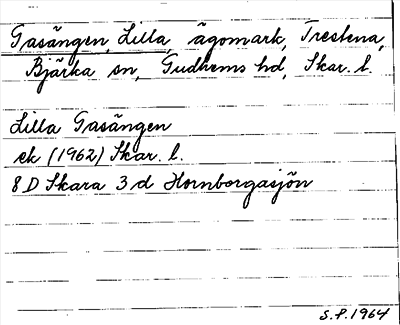 Gasängen, Lilla, ägomark, Trestena,
Bjärka sn, Gudhems hd, Skar. l.
Lilla Gasängen
ek (1962) Skar. l.
8 D Skara 3 d Hornborgasjön
S.P. 1964